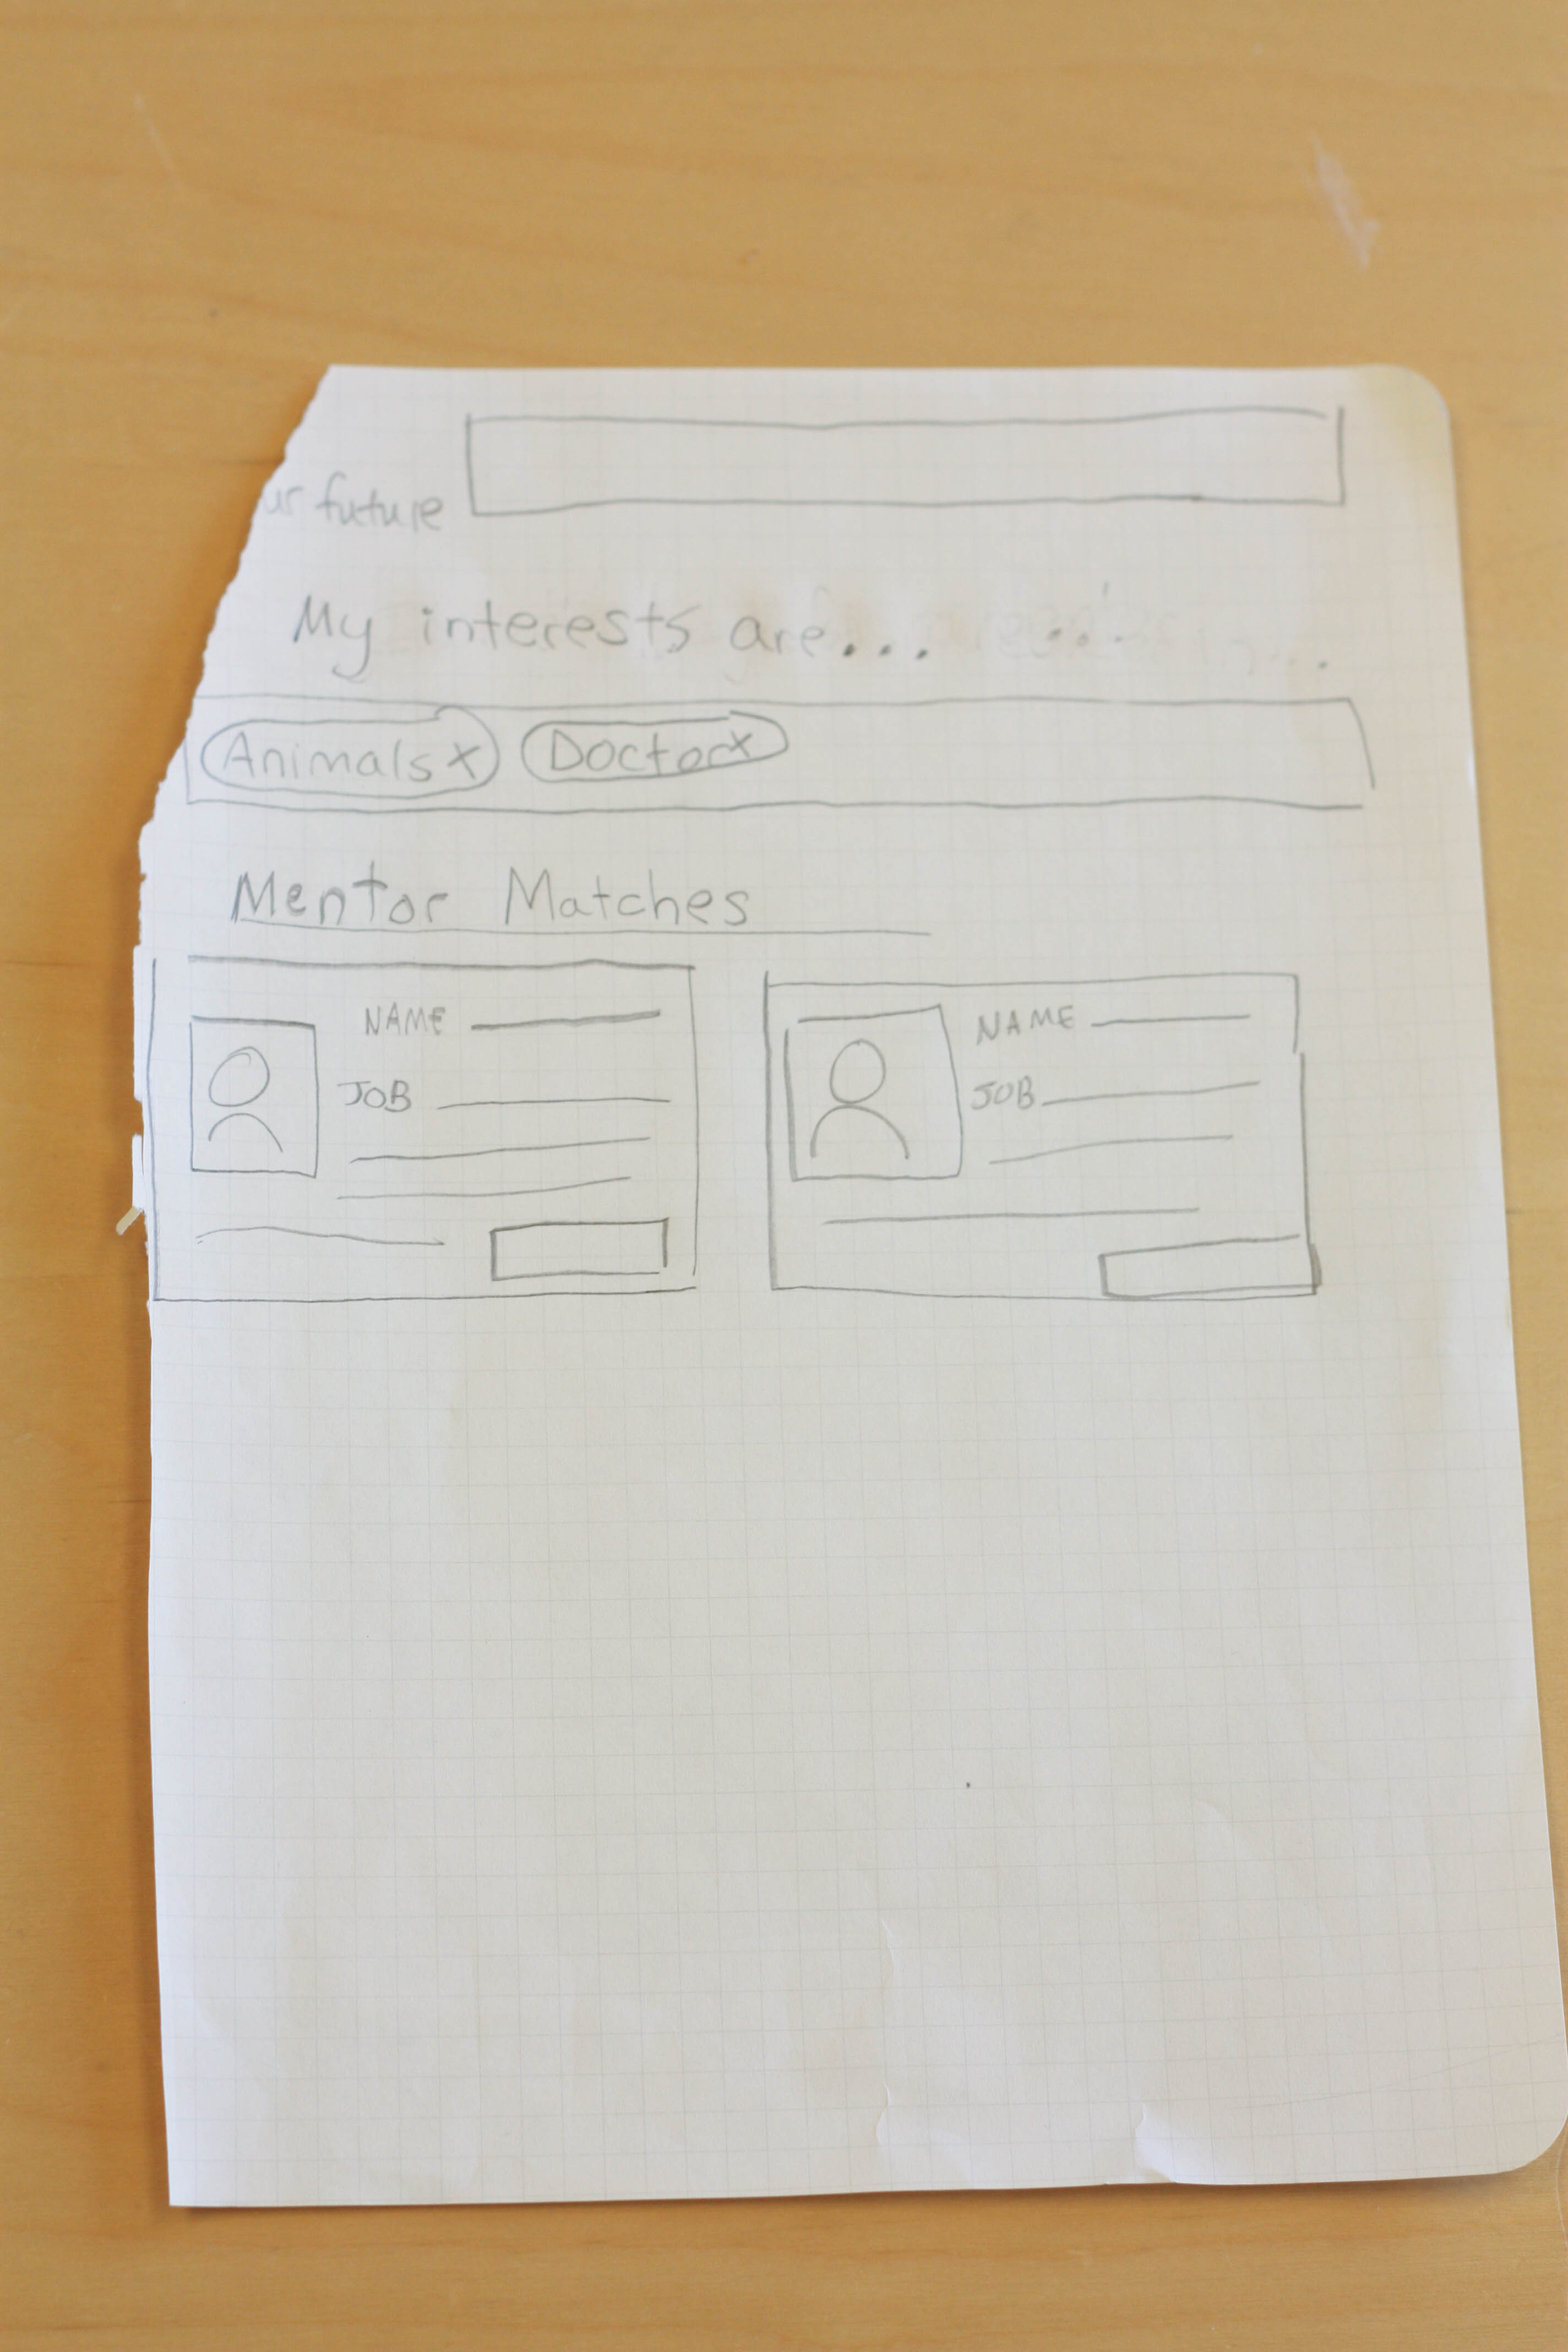 ur future
My interests are...
Animals x Doctor x
Mentor Matches
NAME NAME
JOB JOB